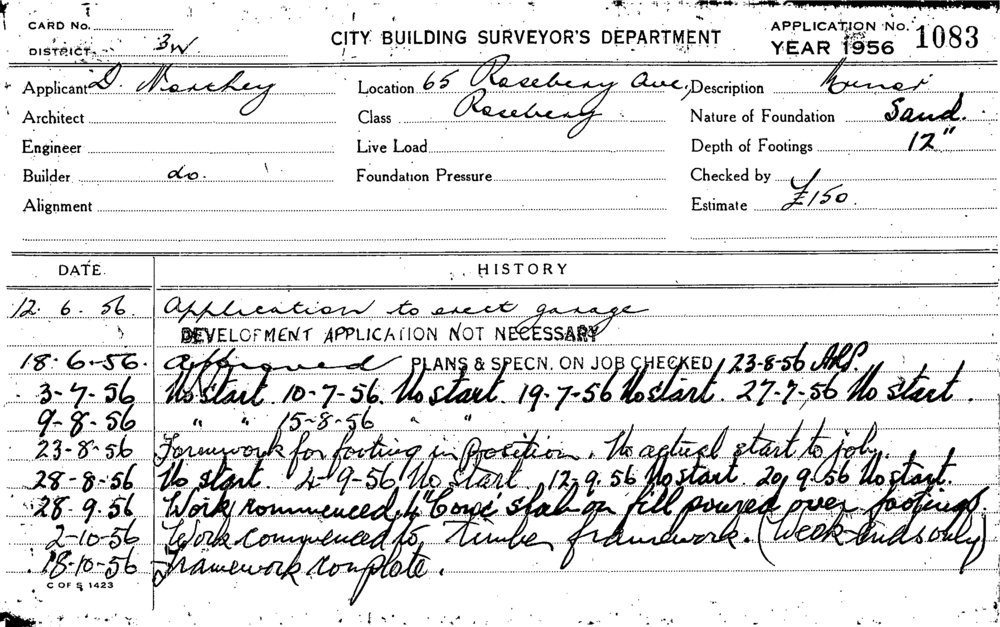 CARD No.
DISTRICT 3W
CITY BUILDING SURVEYOR'S DEPARTMENT
APPLICATION No. 1083
YEAR 1956
Applicant D. Marchey Location 65 Rosebery Ave, Description Minor
Architect Class Rosebery Nature of Foundation Sand.
Engineer Live Load Depth of Footings 12"
Builder do. Foundation Pressure Checked by
Alignment Estimate £150.
DATE. HISTORY
12. 6. 56. Application to erect garage
DEVELOPMENT APPLICATION NOT NECESSARY
18-6-56. Approved PLANS & SPECN. ON JOB CHECKED 23-8-56
3-7-56 No start. 10-7-56. No start. 19-7-56 No start. 27-7-56 No start.
9-8-56 " " 15-8-56 " "
23-8-56 Formwork for footing in position. No actual start to job.
28-8-56 No start. 4-9-56 No start. 12.9.56 No start. 20.9.56 No start.
28.9.56 Work commenced, 4" Conc slab on fill poured over footings.
2-10-56 Work commenced to timber framework. (Week-ends only)
18-10-56 Framework complete.
C OF S 1423